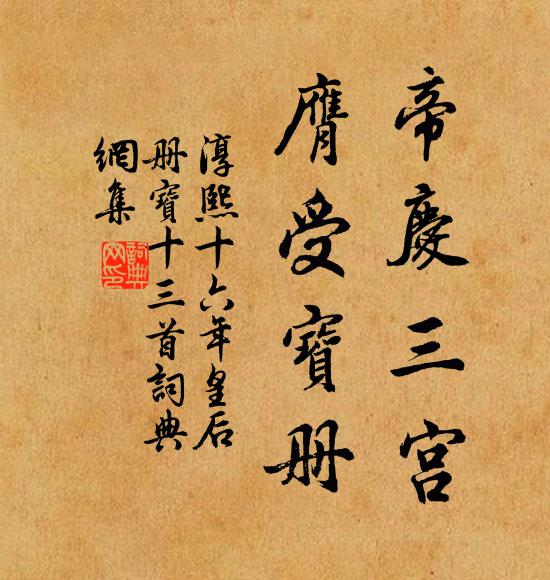 帝慶三宮
膺受寶冊
淳熙十六年皇后
冊寶十三首詞典
網集
詞典網印